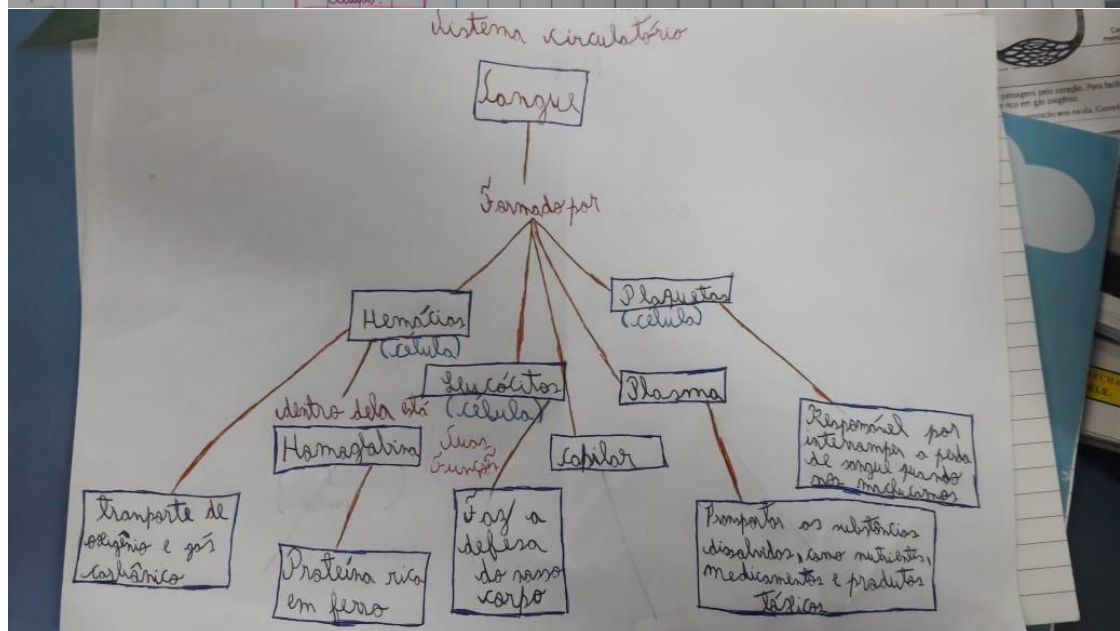 Sistema circulatório
Sangue
Formado por
Hemácias
(célula)
Plaquetas
(célula)
Leucócitos
(célula)
Plasma
dentro dela está
Hamoglobina
Suas
Função
capilar
Responsável por
interramper a perda
de sangue quando
nos machucamos
tranporte de
oxigênio e gás
carbônico
Proteína rica
em ferro
Faz a
defesa
do nosso
corpo
os substâncias
dissolvidas, como nutrientes,
medicamentos e produtos
tóxicos
passagens pelo coração. Para
rico em gás oxigênio.